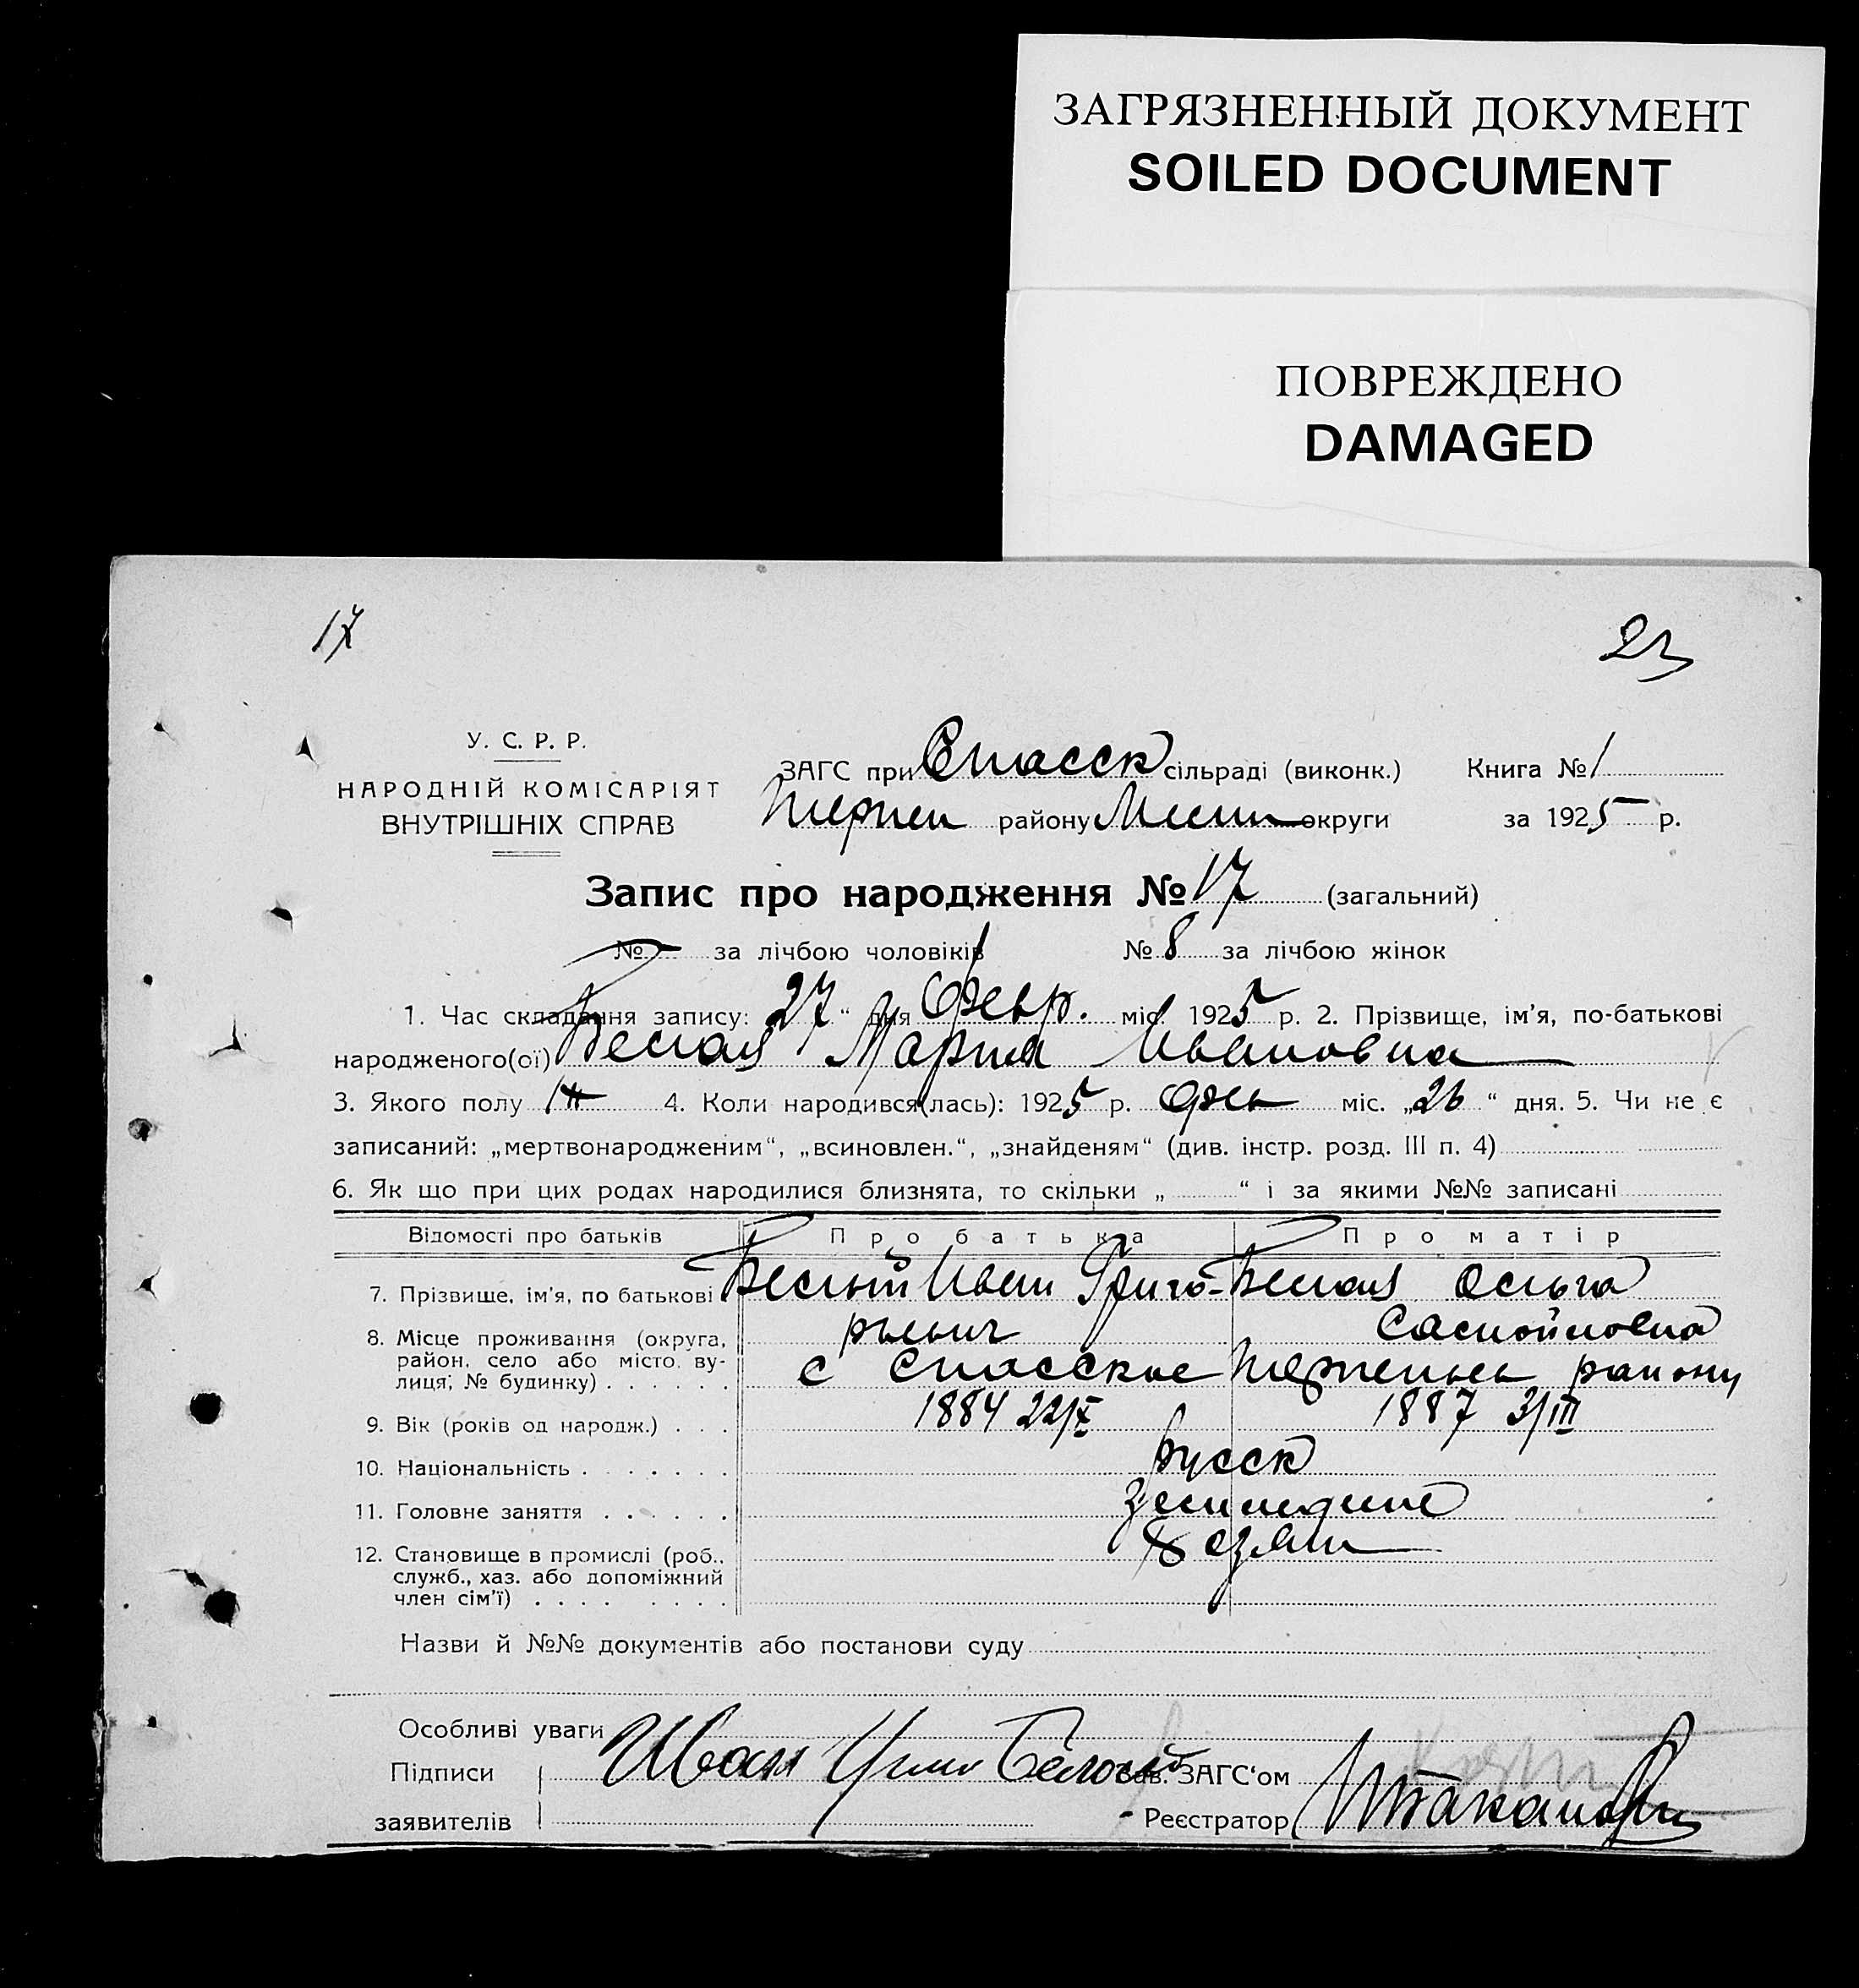 ЗАГРЯЗНЕННЫЙ ДОКУМЕНТ
SOILED DOCUMENT
ПОВРЕЖДЕНО
DAMAGED
17
23
У. С. Р. Р.
НАРОДНІЙ КОМІСАРІЯТ
ВНУТРІШНІХ СПРАВ
ЗАГС при Спасск сільраді (виконк.) Книга № 1
Терпен району округи за 1925 р.
Запис про народження № 17 (загальний)
№ — за лічбою чоловіків № 8 за лічбою жінок
1. Час складання запису: 27 “ дня Февр. міс. 1925 р. 2. Прізвище, ім'я, по-батькові
народженого(ої) Белая Мария Ивановна
3. Якого полу ж 4. Коли народився(лась): 1925 р. Фев міс. „26“ дня. 5. Чи не є
записаний: „мертвонародженим“, „всиновлен.“, „знайденям“ (див. інстр. розд. III п. 4)
6. Як що при цих родах народилися близнята, то скільки „ “ і за якими №№ записані
Відомості про батьків Про батька Про матір
7. Прізвище, ім'я, по батькові Белый Иван Григо- Белая Ольга
рьевич
8. Місце проживання (округа,
район, село або місто, ву-
лиця, № будинку) . . . . . . с Спасское району
9. Вік (років од народж.) . . . 1884 22/X 1887 3/III
10. Національність . . . . . . . русск
11. Головне заняття . . . . . .
12. Становище в промислі (роб.,
служб., хаз. або допоміжний
член сім'ї) . . . . . . . .
Назви й №№ документів або постанови суду
Особливі уваги
Підписи Иван Белый Зав. ЗАГС‘ом
заявителів Реєстратор